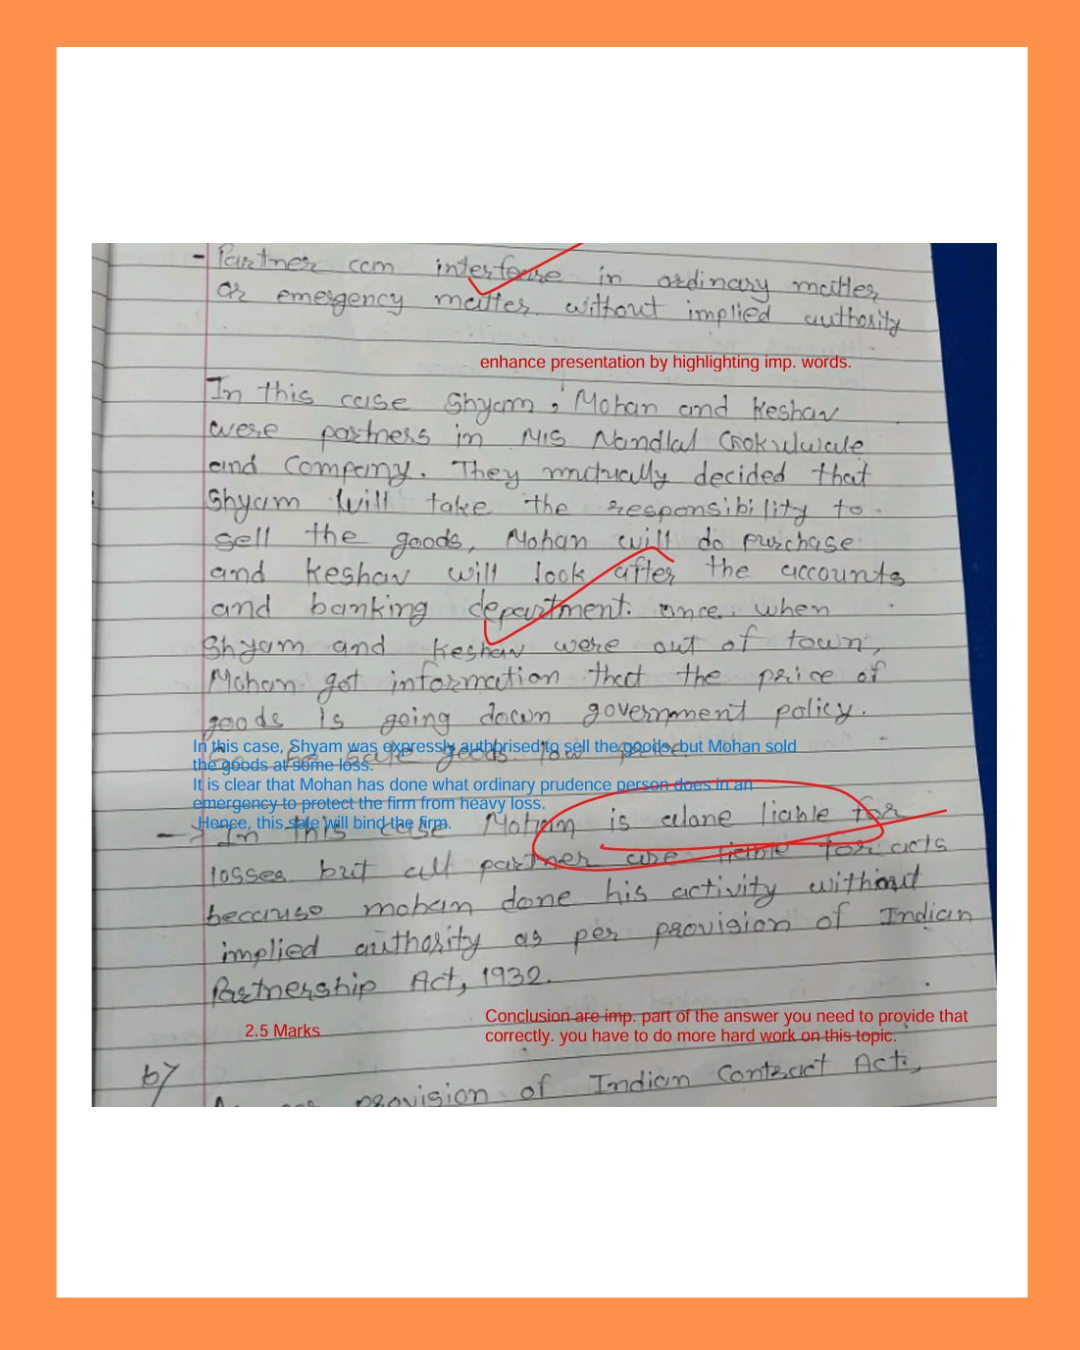 - Partner can interfeare in ordinary matter
or emergency matter without implied authority
enhance presentation by highlighting imp. words.
In this case Shyam, Mohan and Keshav
were partners in M/S Nandlal Gokulwale
and Company. They mutually decided that
Shyam will take the responsibility to
sell the goods, Mohan will do purchase
and Keshav will look after the accounts
and banking department. once when
Shyam and Keshav were out of town,
Mohan got information that the price of
goods is going down government policy.
In this case, Shyam was expressly authorised to sell the goods, but Mohan sold
the goods at some loss.
goods low
It is clear that Mohan has done what ordinary prudence person does in an
emergency to protect the firm from heavy loss.
Hence, this sale will bind the firm.
-> In this case Mohan is alone liable for
losses but all partner are liable for acts
because mohan done his activity without
implied authority as per provision of Indian
Partnership Act, 1932.
2.5 Marks
Conclusion are imp. part of the answer you need to provide that
correctly. you have to do more hard work on this topic.
b)
provision of Indian Contract Act,